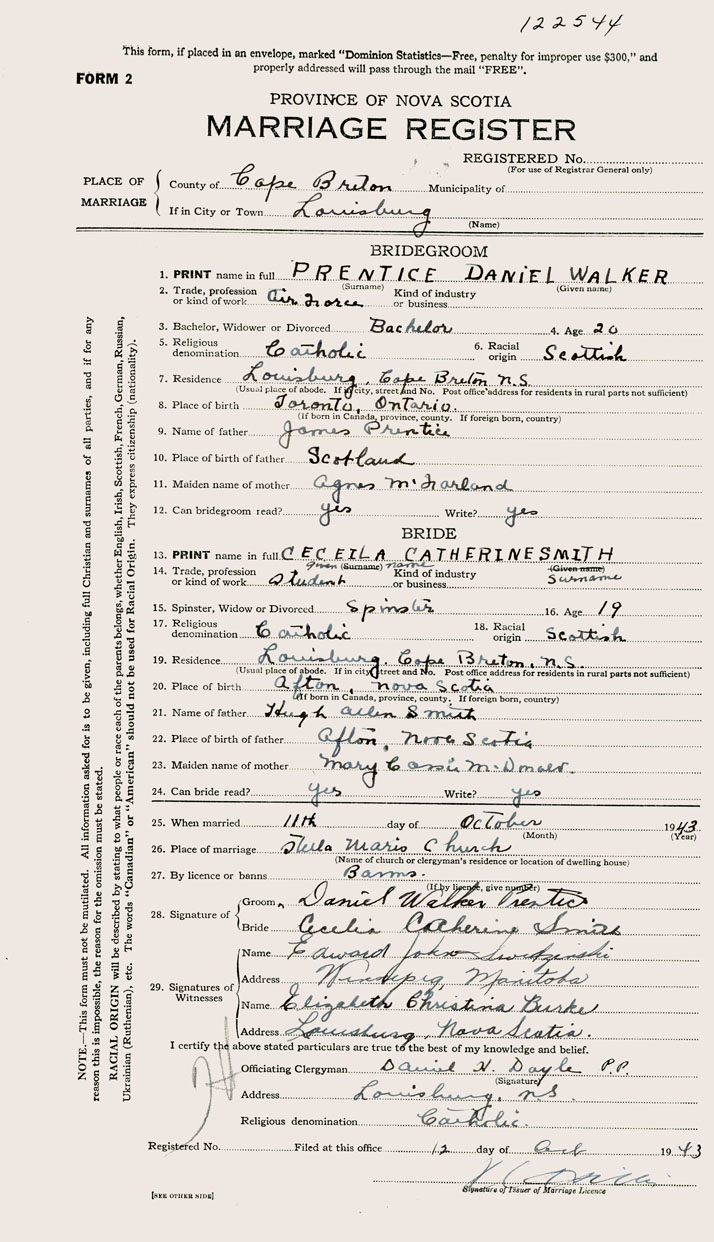 122544
This form, if placed in an envelope, marked "Dominion Statistics—Free, penalty for improper use $300," and
properly addressed will pass through the mail "FREE".
FORM 2
PROVINCE OF NOVA SCOTIA
MARRIAGE REGISTER
REGISTERED No.
(For use of Registrar General only)
PLACE OF MARRIAGE
County of Cape Breton Municipality of
If in City or Town Louisburg
(Name)
BRIDEGROOM
1. PRINT name in full PRENTICE DANIEL WALKER
(Surname) (Given name)
2. Trade, profession or kind of work Air Force Kind of industry or business
3. Bachelor, Widower or Divorced Bachelor 4. Age 20
5. Religious denomination Catholic 6. Racial origin Scottish
7. Residence Louisburg, Cape Breton N.S.
(Usual place of abode. If in city, street and No. Post office address for residents in rural parts not sufficient)
8. Place of birth Toronto, Ontario.
(If born in Canada, province, county. If foreign born, country)
9. Name of father James Prentice
10. Place of birth of father Scotland
11. Maiden name of mother Agnes McFarland
12. Can bridegroom read? yes Write? yes
BRIDE
13. PRINT name in full CECEILA CATHERINE SMITH
given (Surname) name (Given name)
14. Trade, profession or kind of work Student Kind of industry or business Surname
15. Spinster, Widow or Divorced Spinster 16. Age 19
17. Religious denomination Catholic 18. Racial origin Scottish
19. Residence Louisburg, Cape Breton, N.S.
(Usual place of abode. If in city street and No. Post office address for residents in rural parts not sufficient)
20. Place of birth Afton, Nova Scotia
(If born in Canada, province, county. If foreign born, country)
21. Name of father Hugh Allen Smith
22. Place of birth of father Afton, Nova Scotia
23. Maiden name of mother Mary Cassie McDonald.
24. Can bride read? yes Write? yes
25. When married 11th day of October 1943
(Month) (Year)
26. Place of marriage Stella Maris Church
(Name of church or clergyman's residence or location of dwelling house)
27. By licence or banns Banns.
(If by licence, give number)
28. Signature of
Groom Daniel Walker Prentice
Bride Cecelia Catherine Smith
29. Signatures of Witnesses
Name Edward John
Address Winnipeg, Manitoba
Name Elizabeth Christina Burke
Address Louisburg, Nova Scotia.
I certify the above stated particulars are true to the best of my knowledge and belief.
Officiating Clergyman Daniel H. Doyle P.P.
(Signature)
Address Louisburg, N.S.
Religious denomination Catholic.
Registered No. Filed at this office 12 day of Oct 1943
Signature of Issuer of Marriage Licence
[SEE OTHER SIDE]
NOTE.—This form must not be mutilated. All information asked for is to be given, including full Christian and surnames of all parties, and if for any
reason this is impossible, the reason for the omission must be stated.
RACIAL ORIGIN will be described by stating to what people or race each of the parents belongs, whether English, Irish, Scottish, French, German, Russian,
Ukrainian (Ruthenian), etc. The words "Canadian" or "American" should not be used for Racial Origin. They express citizenship (nationality).